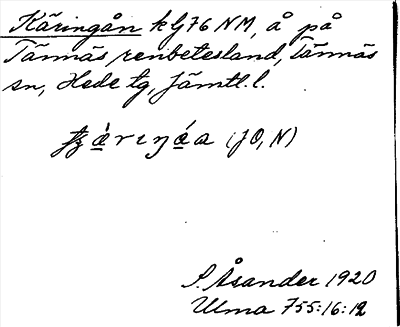 Käringån kG76 NM, å på
Tännäs renbetesland, Tännäs
sn, Hede tg, Jämtl. l.
(JO, N)
S. Åsander 1920
Ulma 755:16:12